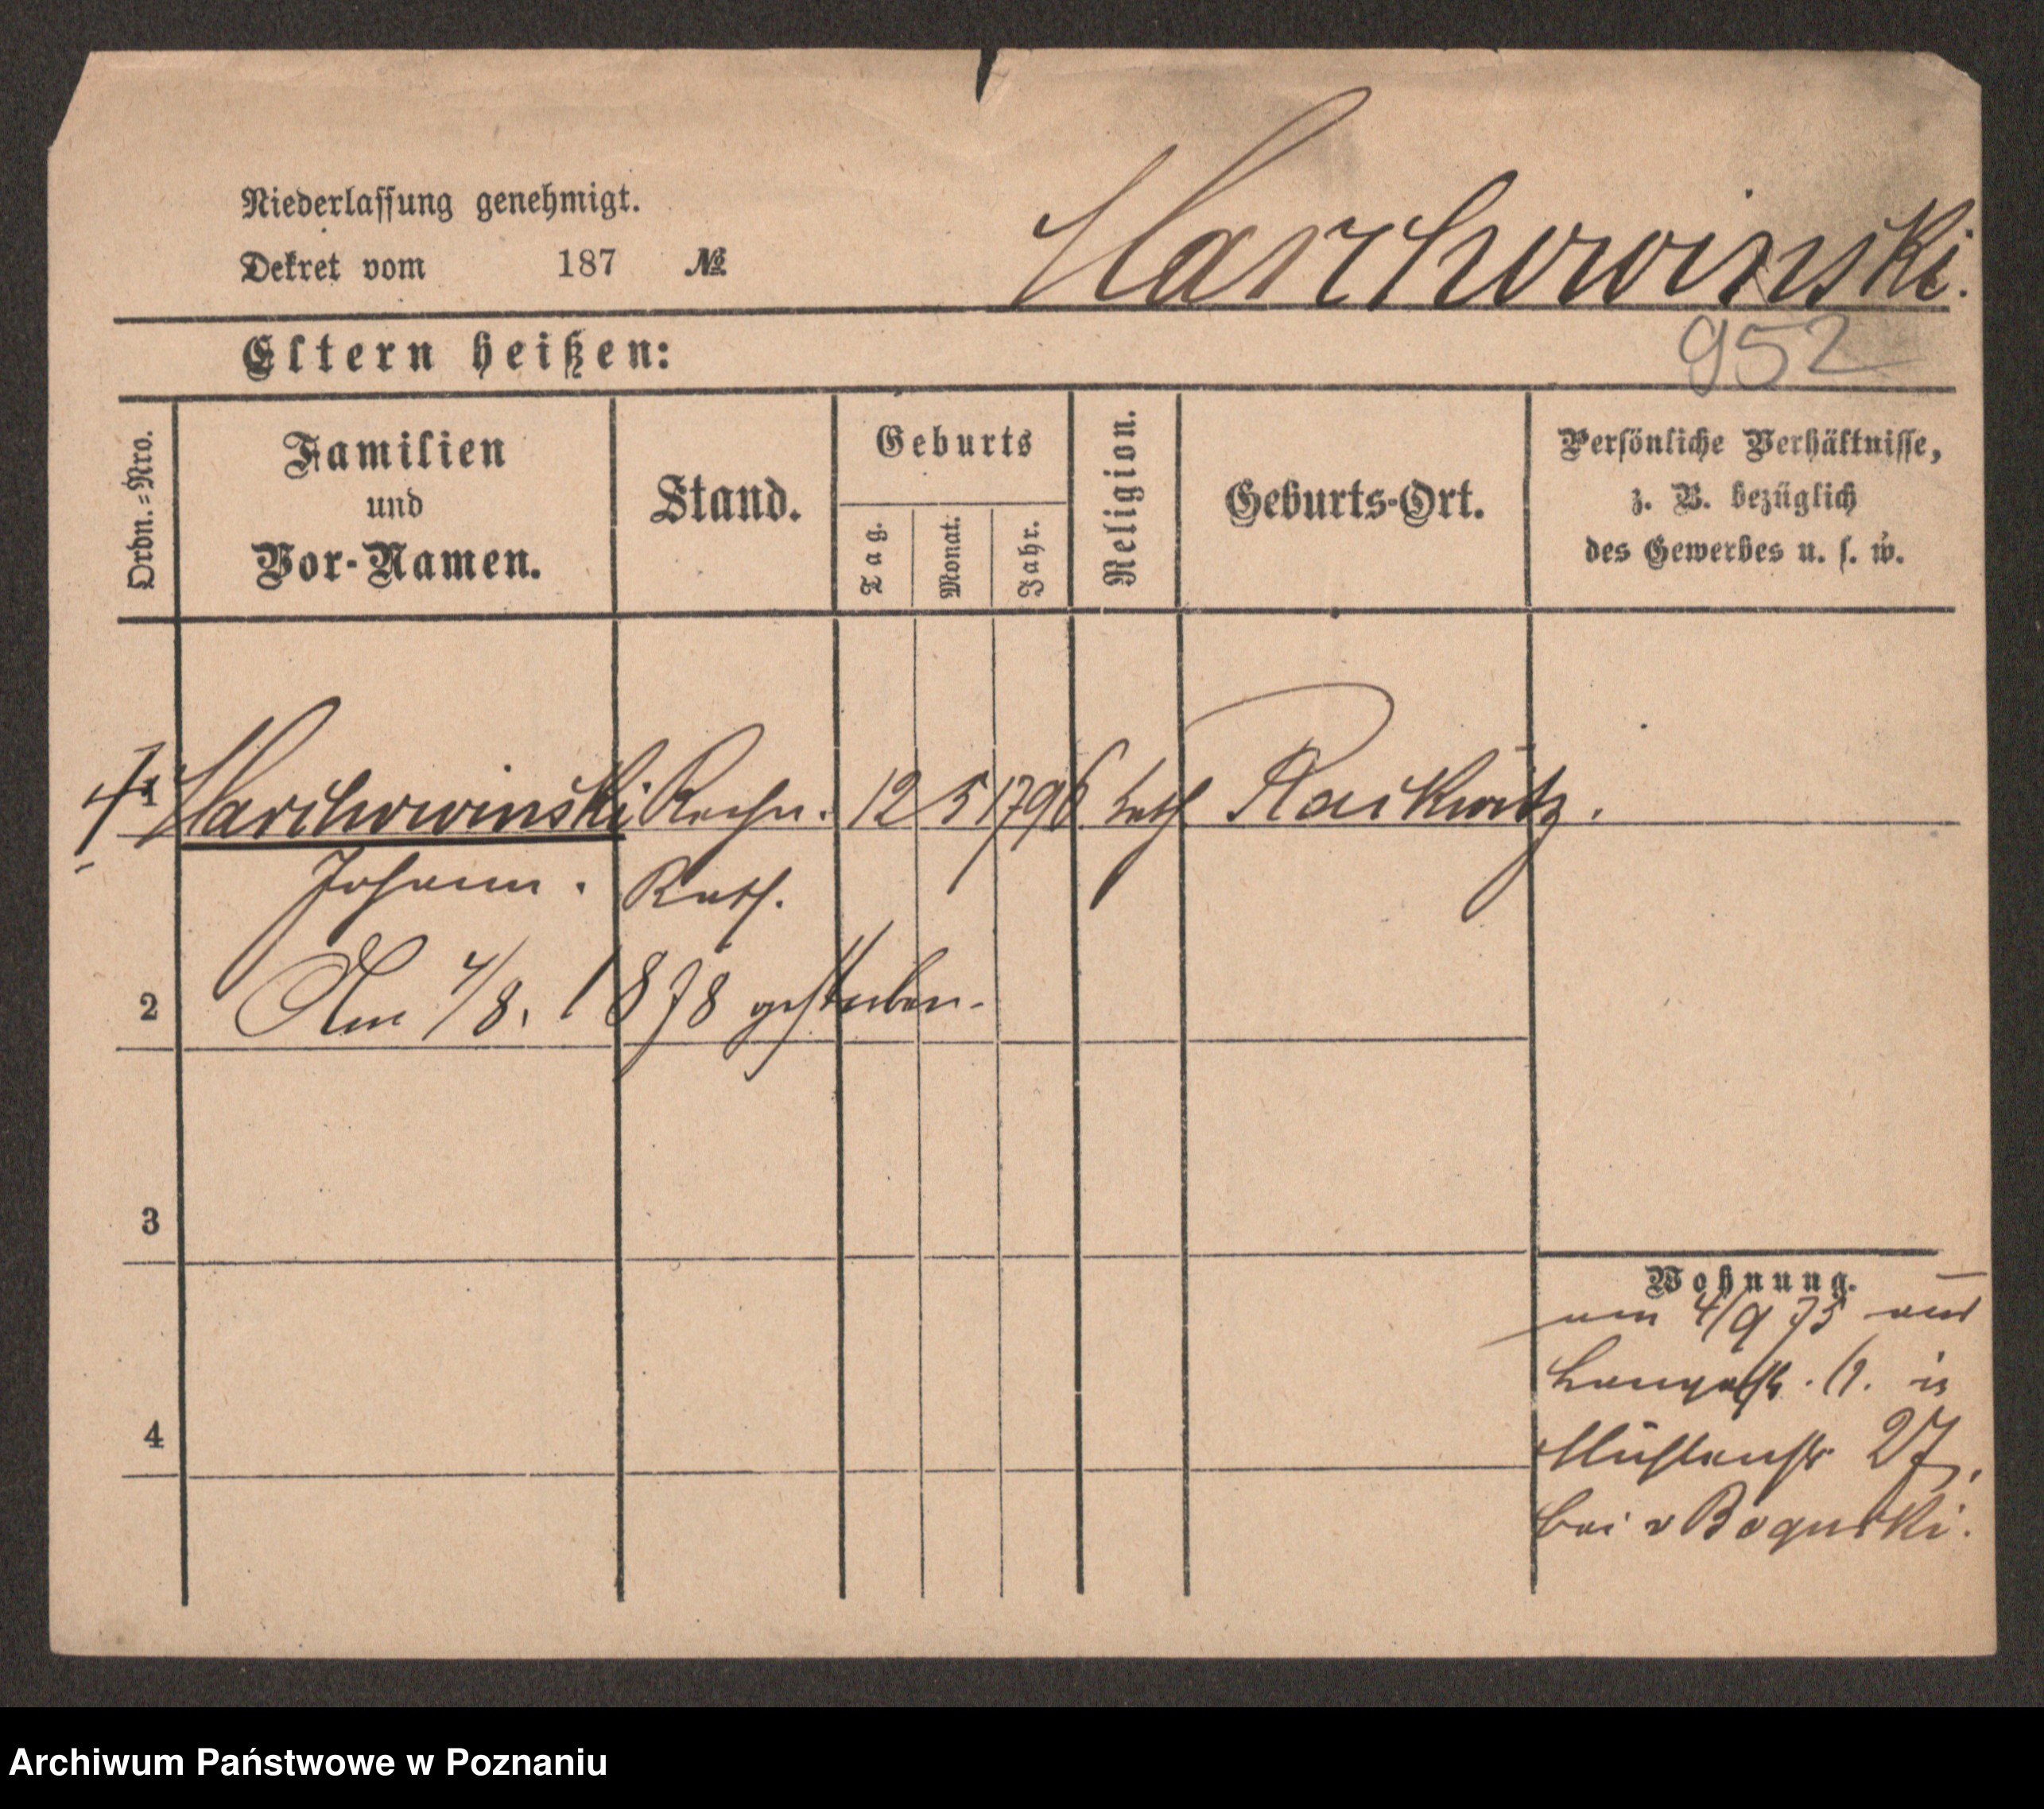 Niederlassung genehmigt.
Dekret vom 187 №
Marchwinski.
952
Eltern heißen:
Ordn.=Nro.
Familien
und
Vor-Namen.
Stand.
Geburts
Tag.
Monat.
Jahr.
Religion.
Geburts-Ort.
Persönliche Verhältnisse,
z. B. bezüglich
des Gewerbes u. s. w.
1 Marchwinski Rechn. 12 5 1796 kath Raschkwitz.
Johann. Rath.
2 Am 4/8. 1878 gestorben.
3
4
Wohnung.
am 4/9 75 aus
Langestr. 12. in
Mühlenstr 27,
bei v Boguski.
Archiwum Państwowe w Poznaniu